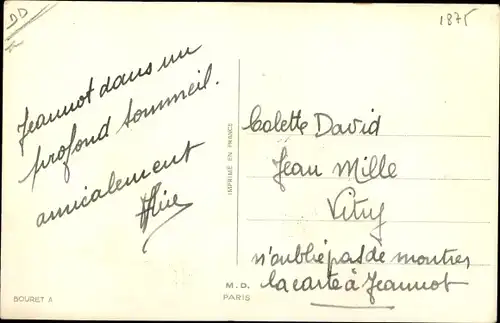 DD
1875
Jeannot dans un
profond sommeil.
amicalement
IMPRIMÉ EN FRANCE
Colette David
Jean Mille
Vitry
n'oublie pas de montrer
la carte à Jeannot
BOURET A
M.D.
PARIS